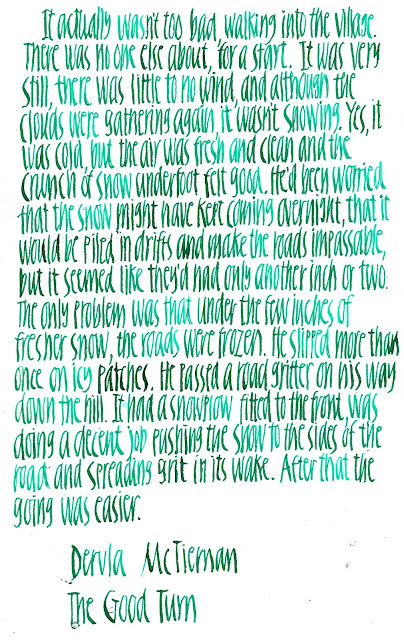 It actually wasn't too bad, walking into the village.
There was no one else about, for a start. It was very
still, there was little to no wind, and although the
clouds were gathering again it wasn't snowing. Yes, it
was cold, but the air was fresh and clean and the
crunch of snow underfoot felt good. He'd been worried
that the snow might have kept coming overnight, that it
would be piled in drifts and make the roads impassable,
but it seemed like they'd had only another inch or two.
The only problem was that under the few inches of
fresher snow, the roads were frozen. He slipped more than
once on icy patches. He passed a road gritter on his way
down the hill. It had a snowplow fitted to the front, was
doing a decent job pushing the snow to the sides of the
road and spreading grit in its wake. After that the
going was easier.
Dervla McTiernan
The Good Turn